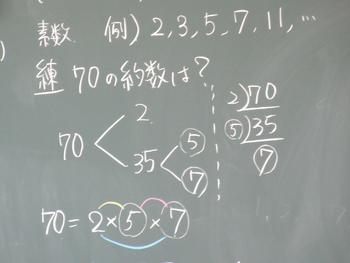 素数 例) 2, 3, 5, 7, 11, …
)
練 70の約数は?
70
2
35
⑤
⑦
2)70
⑤)35
⑦
70 = 2×⑤×⑦